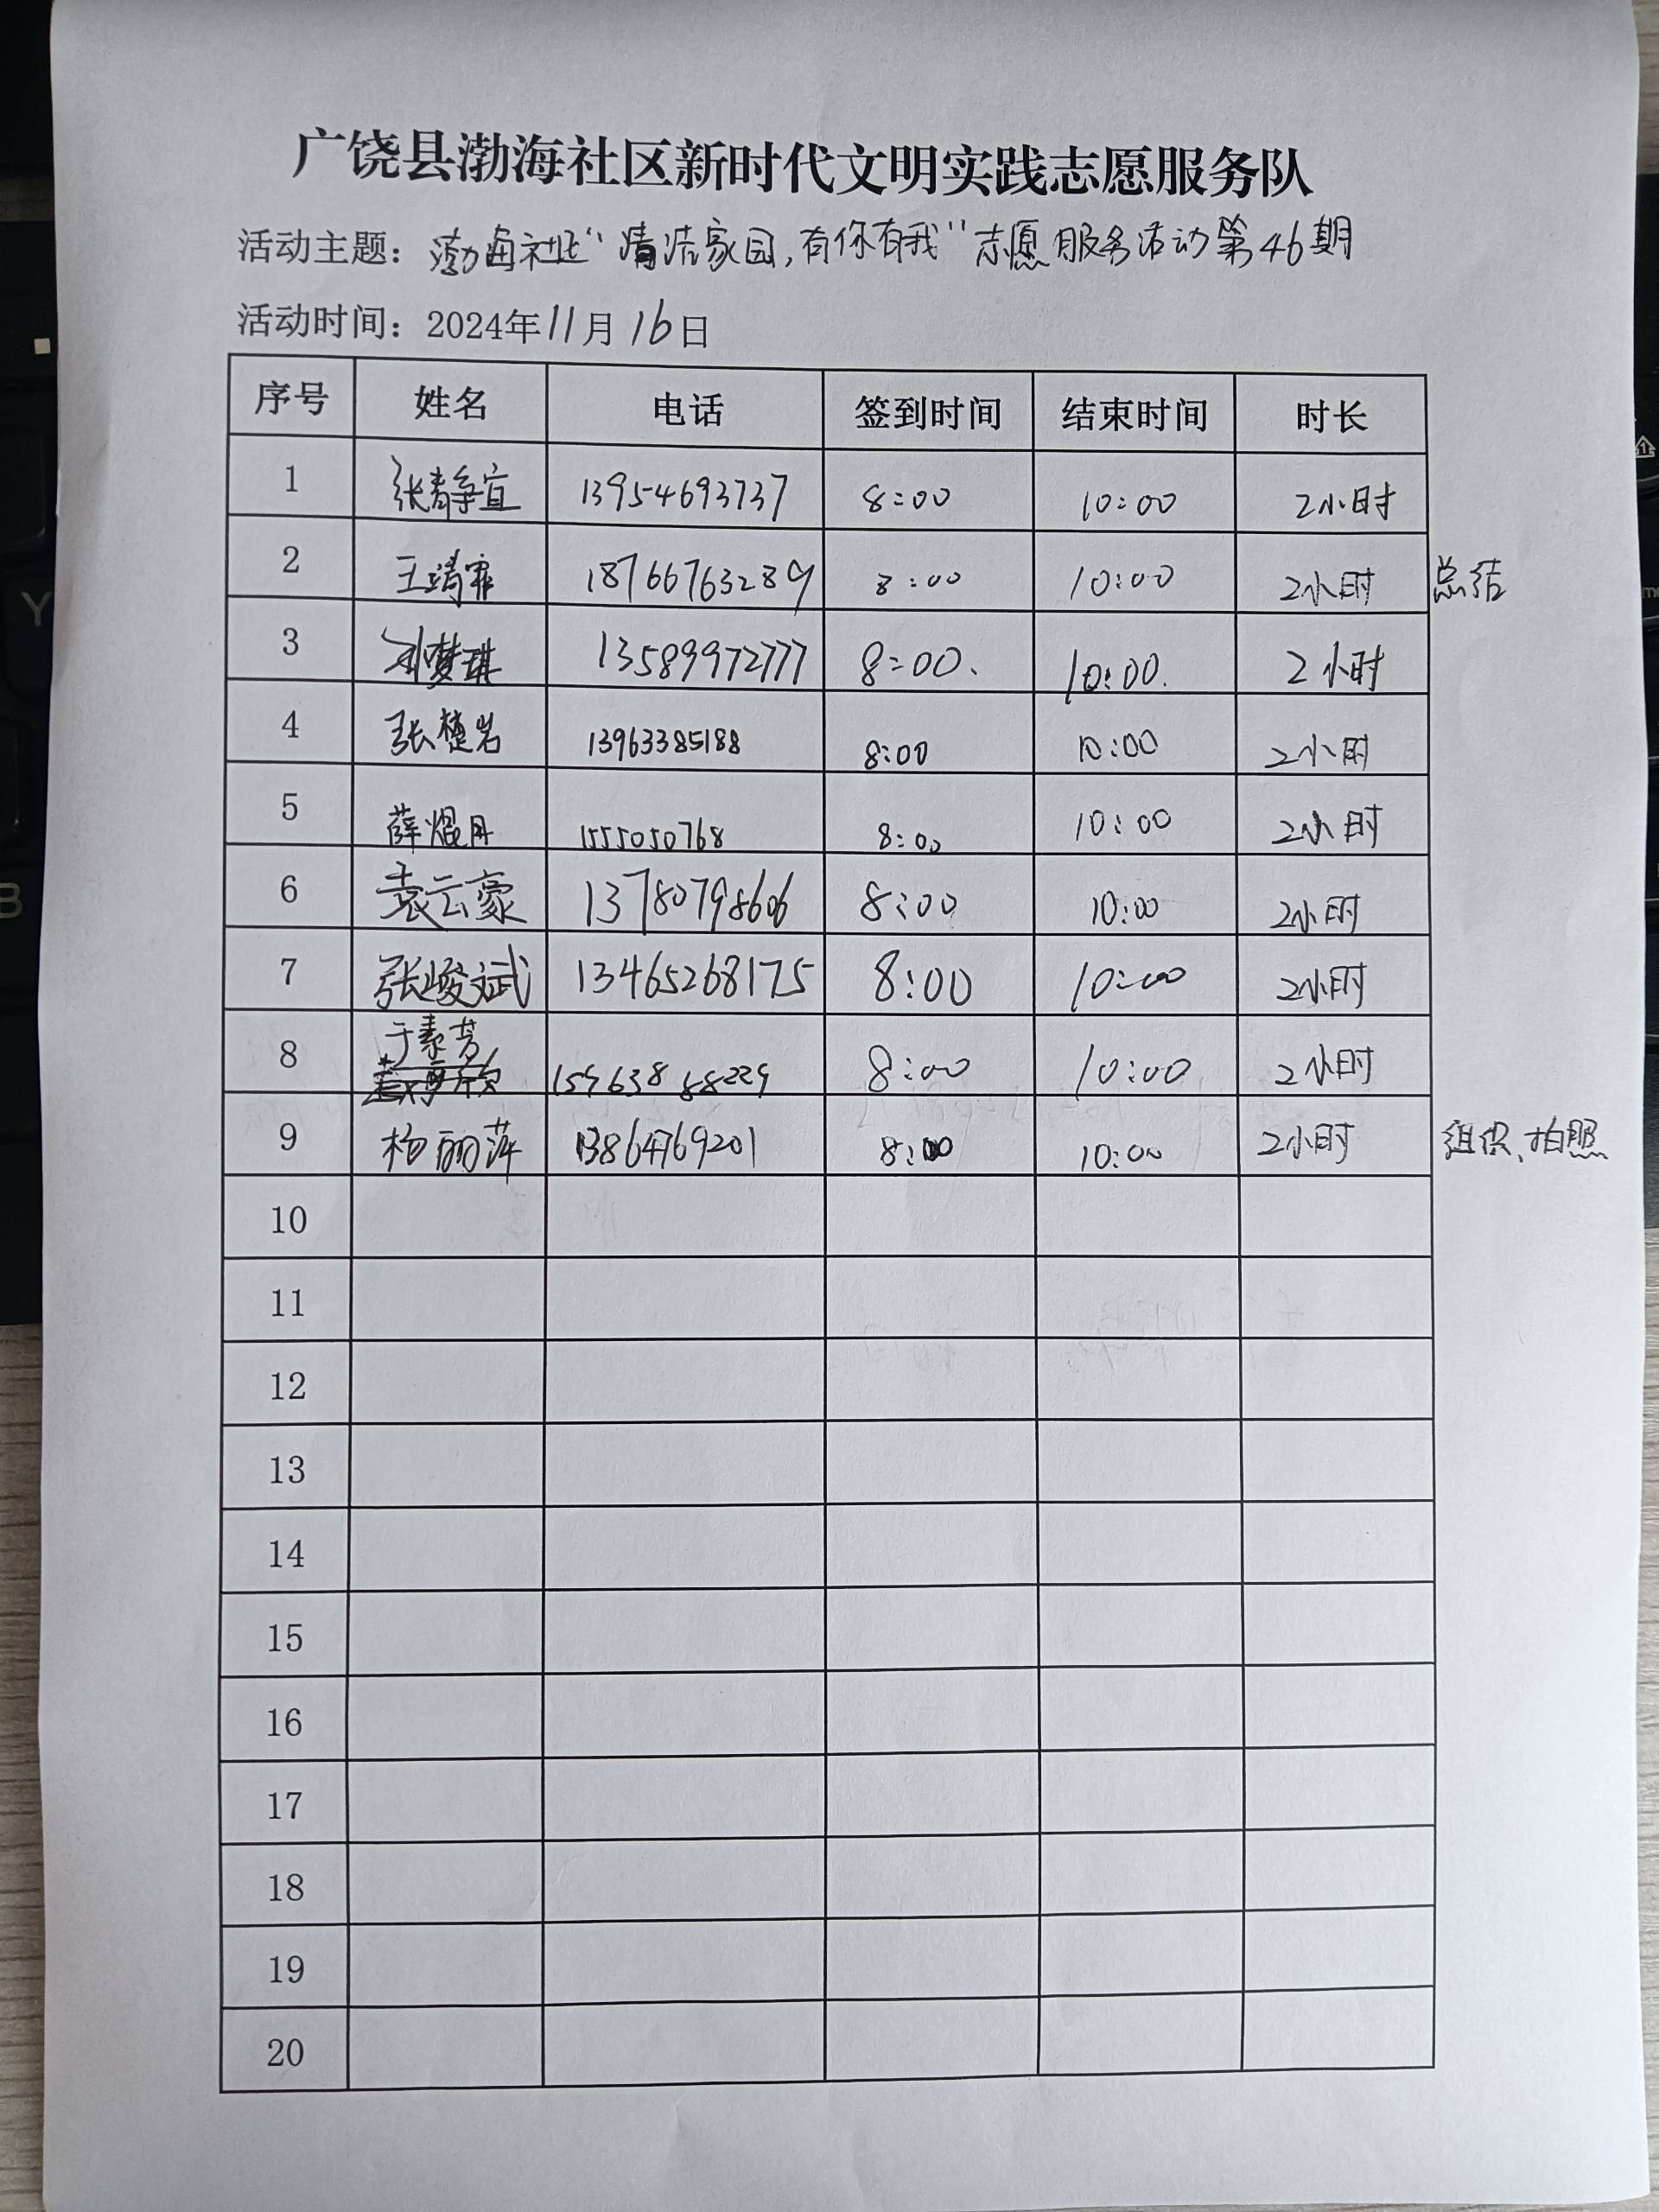 广饶县渤海社区新时代文明实践志愿服务队
活动主题：渤海社区“清洁家园，有你有我”志愿服务活动第46期
活动时间：2024年11月16日
序号 姓名 电话 签到时间 结束时间 时长
1 张静宜 13954693737 8:00 10:00 2小时
2 王靖霏 18766763289 8:00 10:00 2小时 总结
3 刘梦琪 13589972777 8:00. 10:00. 2小时
4 张楚岩 13963385188 8:00 10:00 2小时
5 薛焜月 1555050768 8:00 10:00 2小时
6 袁云豪 13780798606 8:00 10:00 2小时
7 张峻斌 13465268175 8:00 10:00 2小时
8 于素芳 15963888229 8:00 10:00 2小时
9 杨丽萍 13864769201 8:00 10:00 2小时 组织、拍照
10
11
12
13
14
15
16
17
18
19
20